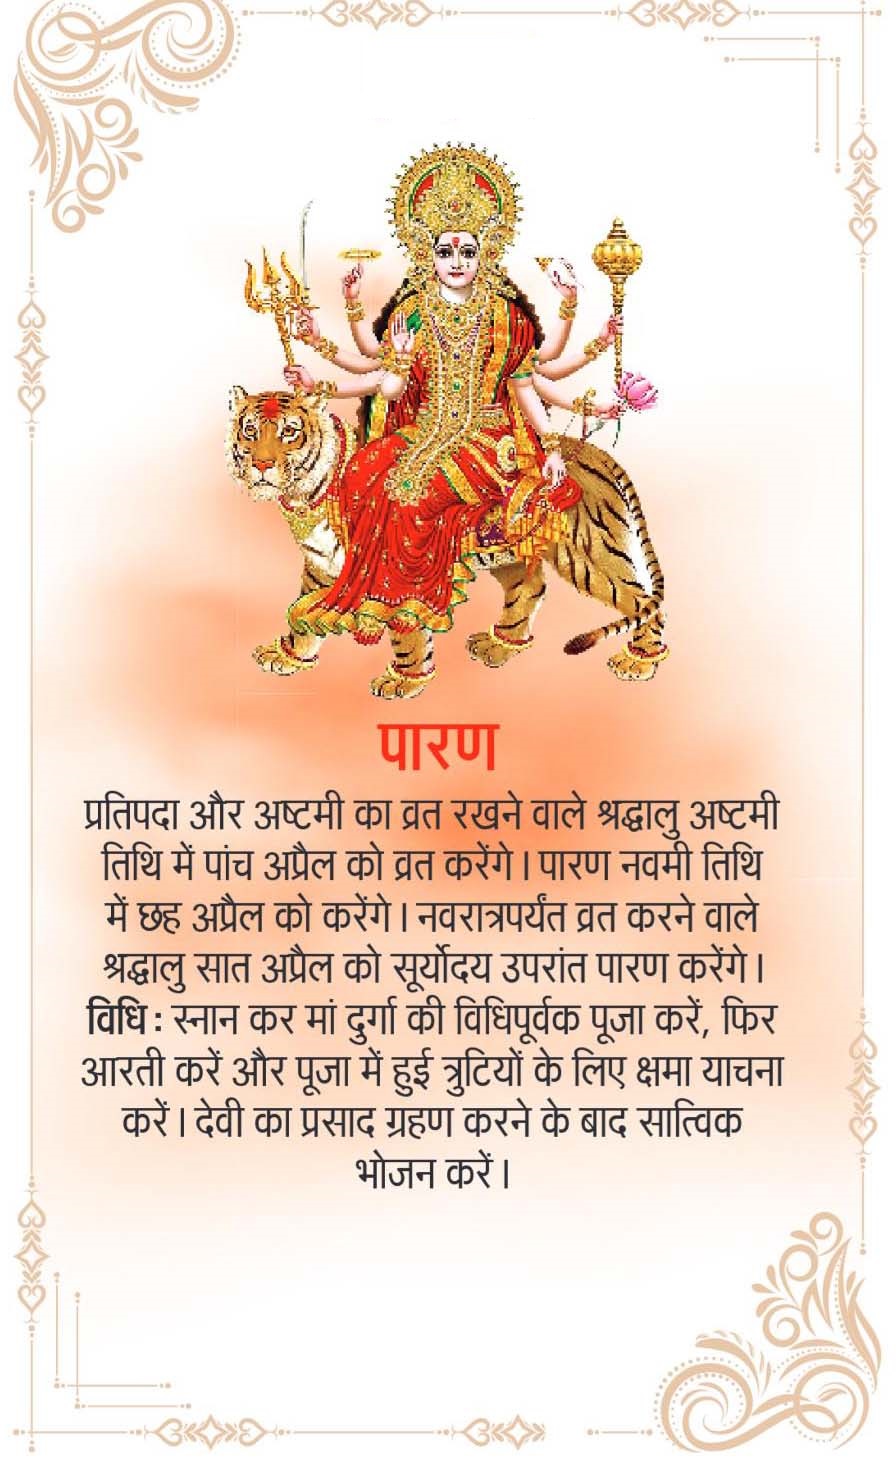 पारण
प्रतिपदा और अष्टमी का व्रत रखने वाले श्रद्धालु अष्टमी
तिथि में पांच अप्रैल को व्रत करेंगे। पारण नवमी तिथि
में छह अप्रैल को करेंगे। नवरात्रपर्यंत व्रत करने वाले
श्रद्धालु सात अप्रैल को सूर्योदय उपरांत पारण करेंगे।
विधि : स्नान कर मां दुर्गा की विधिपूर्वक पूजा करें, फिर
आरती करें और पूजा में हुई त्रुटियों के लिए क्षमा याचना
करें। देवी का प्रसाद ग्रहण करने के बाद सात्विक
भोजन करें।